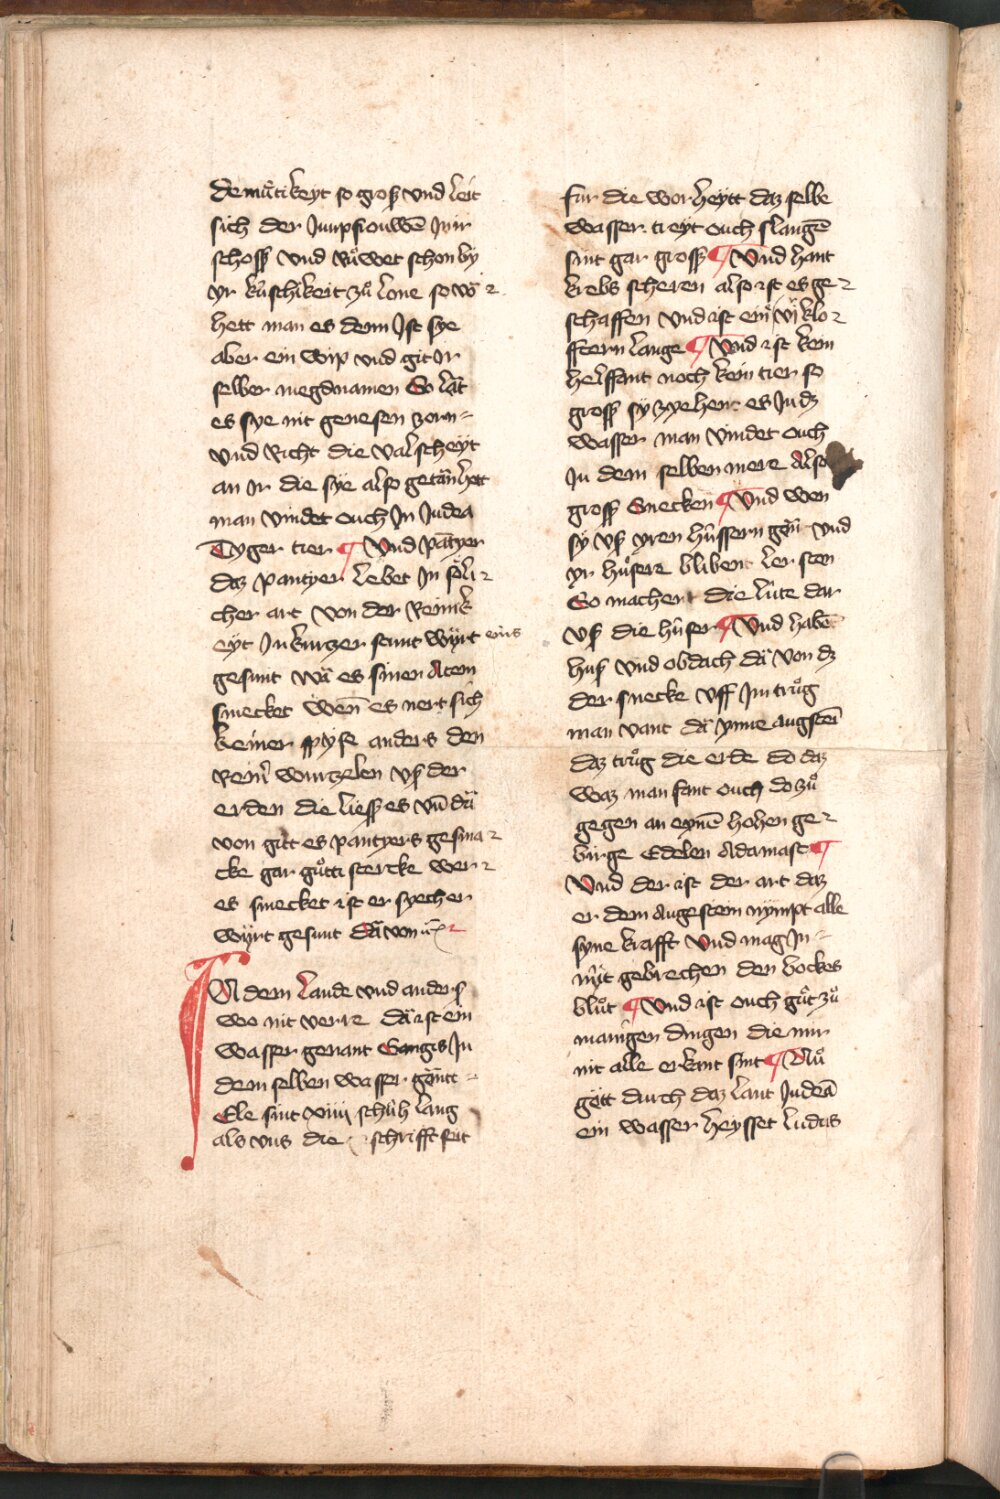 demuͦtikeyt so groß vnd leit
sich der Junpfrouwē Jn ir
schoß vnd Ruͦwet schon by
yr kuschikeit zuͦ lone so vō
hett man es denn Jst sye
aber ein wip vnd git Jr
selber megdnamen So lät
es sye nit genesen zorn
vnd Richt die valscheyt
an Jr die sye also getän hett
man vindet ouch Jn Judea
Tyger tier ¶ Vnd pātyer
daz pantyer lebet Jn soͤli
cher art von der Reinik
eyt Jn kurtzer stunt wyͤrt eins
gesunt wä es sinen Atem
smecket wenn es nert sich
keiner spyse anders den
Rein wurtzelen vß der
erden die ließ es vn̄ dä
von gitt es pantyers gesma
cke gar guͦtti stercke wer
es smecket ist er syech er
wyͤrt gesunt Dä von
JN dem lande vnd anderß
wo nit verre dä ist ein
wasser genant Ganges Jn
dem selben wasser gönt
Ele sint xiiij schüh lang
als vns die schrifft seit
fur die worheytt daz selbe
wasser treyt ouch slangē
sint gar groß ¶ Vnd hant
krebs scheren also ist es ge
schaffen vnd ist ein vj klo
fftern lange ¶ Vnd ist kein
helffant noch kein tier so
groß sy zyehent es Jn dz
wasser man vindet ouch
Jn dem selben mere Also
groß Snecken ¶ Vnd wen
sy vß yren hüssern gön vnd
yr huͤsere bliben ler sten
So machent die lüte dar
vß die hüser ¶ Vnd habē
huß vnd obdach dä von dz
der snecke vff Jm truͦg
man vant dä ynne augstein
daz truͦg die erde do daz
waz man fant ouch do zuͦ
gegen an eynē hohen ge
birge Edelen Adamast ¶
Vnd der ist der art daz
er dem Augestein nympt alle
syne krafft Vnd mag Jn
nüt gebrechen den bockes
bluͦt ¶ Vnd ist ouch guͦt zuͦ
manigen dingen die mir
nit alle erkant sint ¶ Nuͦ
gött durch daz lant Judeā
ein wasser heysset Ludas